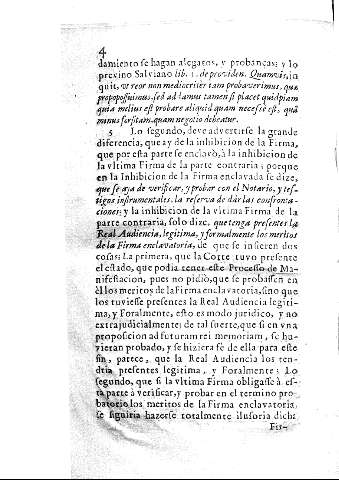 4
damiento se hagan alegatos, y probanças; y lo
previno Salviano lib. 1. de providen. Quamvis, in
quit, ut reor non mediocriter tam probaverimus, quæ
proposuimus, sed ad tamus tamen si placet quidpiam
quia melius est probare aliquid quam necesse est, quã
minus forsitam, quam negotio debeatur.
5 Lo segundo, deve advertirse la grande
diferencia, que ay de la inhibicion de la Firma,
que por esta parte se enclavò, à la inhibicion de
la vltima Firma de la parte contraria; porque
en la Inhibicion de la Firma enclavada se dize,
que se aya de verificar, y probar con el Notario, y tes-
tigos instrumentales, la reserva de dàr las confronta-
ciones; y la inhibicion de la vltima Firma de la
parte contraria, solo dize, que tenga presentes la
Real Audiencia, legitima, y formalmente los meritos
de la Firma enclavatoria, de que se infieren dos
cosas; La primera, que la Corte tuvo presente
el estado, que podia tener este Processo de Ma-
nifestacion, pues no pidiò, que se probassen en
èl los meritos de la Firma enclavatoria, sino que
los tuviesse presentes la Real Audiencia legiti-
ma, y Foralmente, esto es modo juridico, y no
extrajudicialmente; de tal suerte, que si en vna
proposicion ad futuram rei memoriam, se hu-
vieran probado, y se hiziera fè de ella para este
fin, parece, que la Real Audiencia los ten-
dria presentes legitima, y Foralmente; Lo
segundo, que si la vltima Firma obligasse à es-
ta parte à verificar, y probar en el termino pro-
batorio los meritos de la Firma enclavatoria,
se siguiria hazerse totalmente ilusoria dicha
Fir-